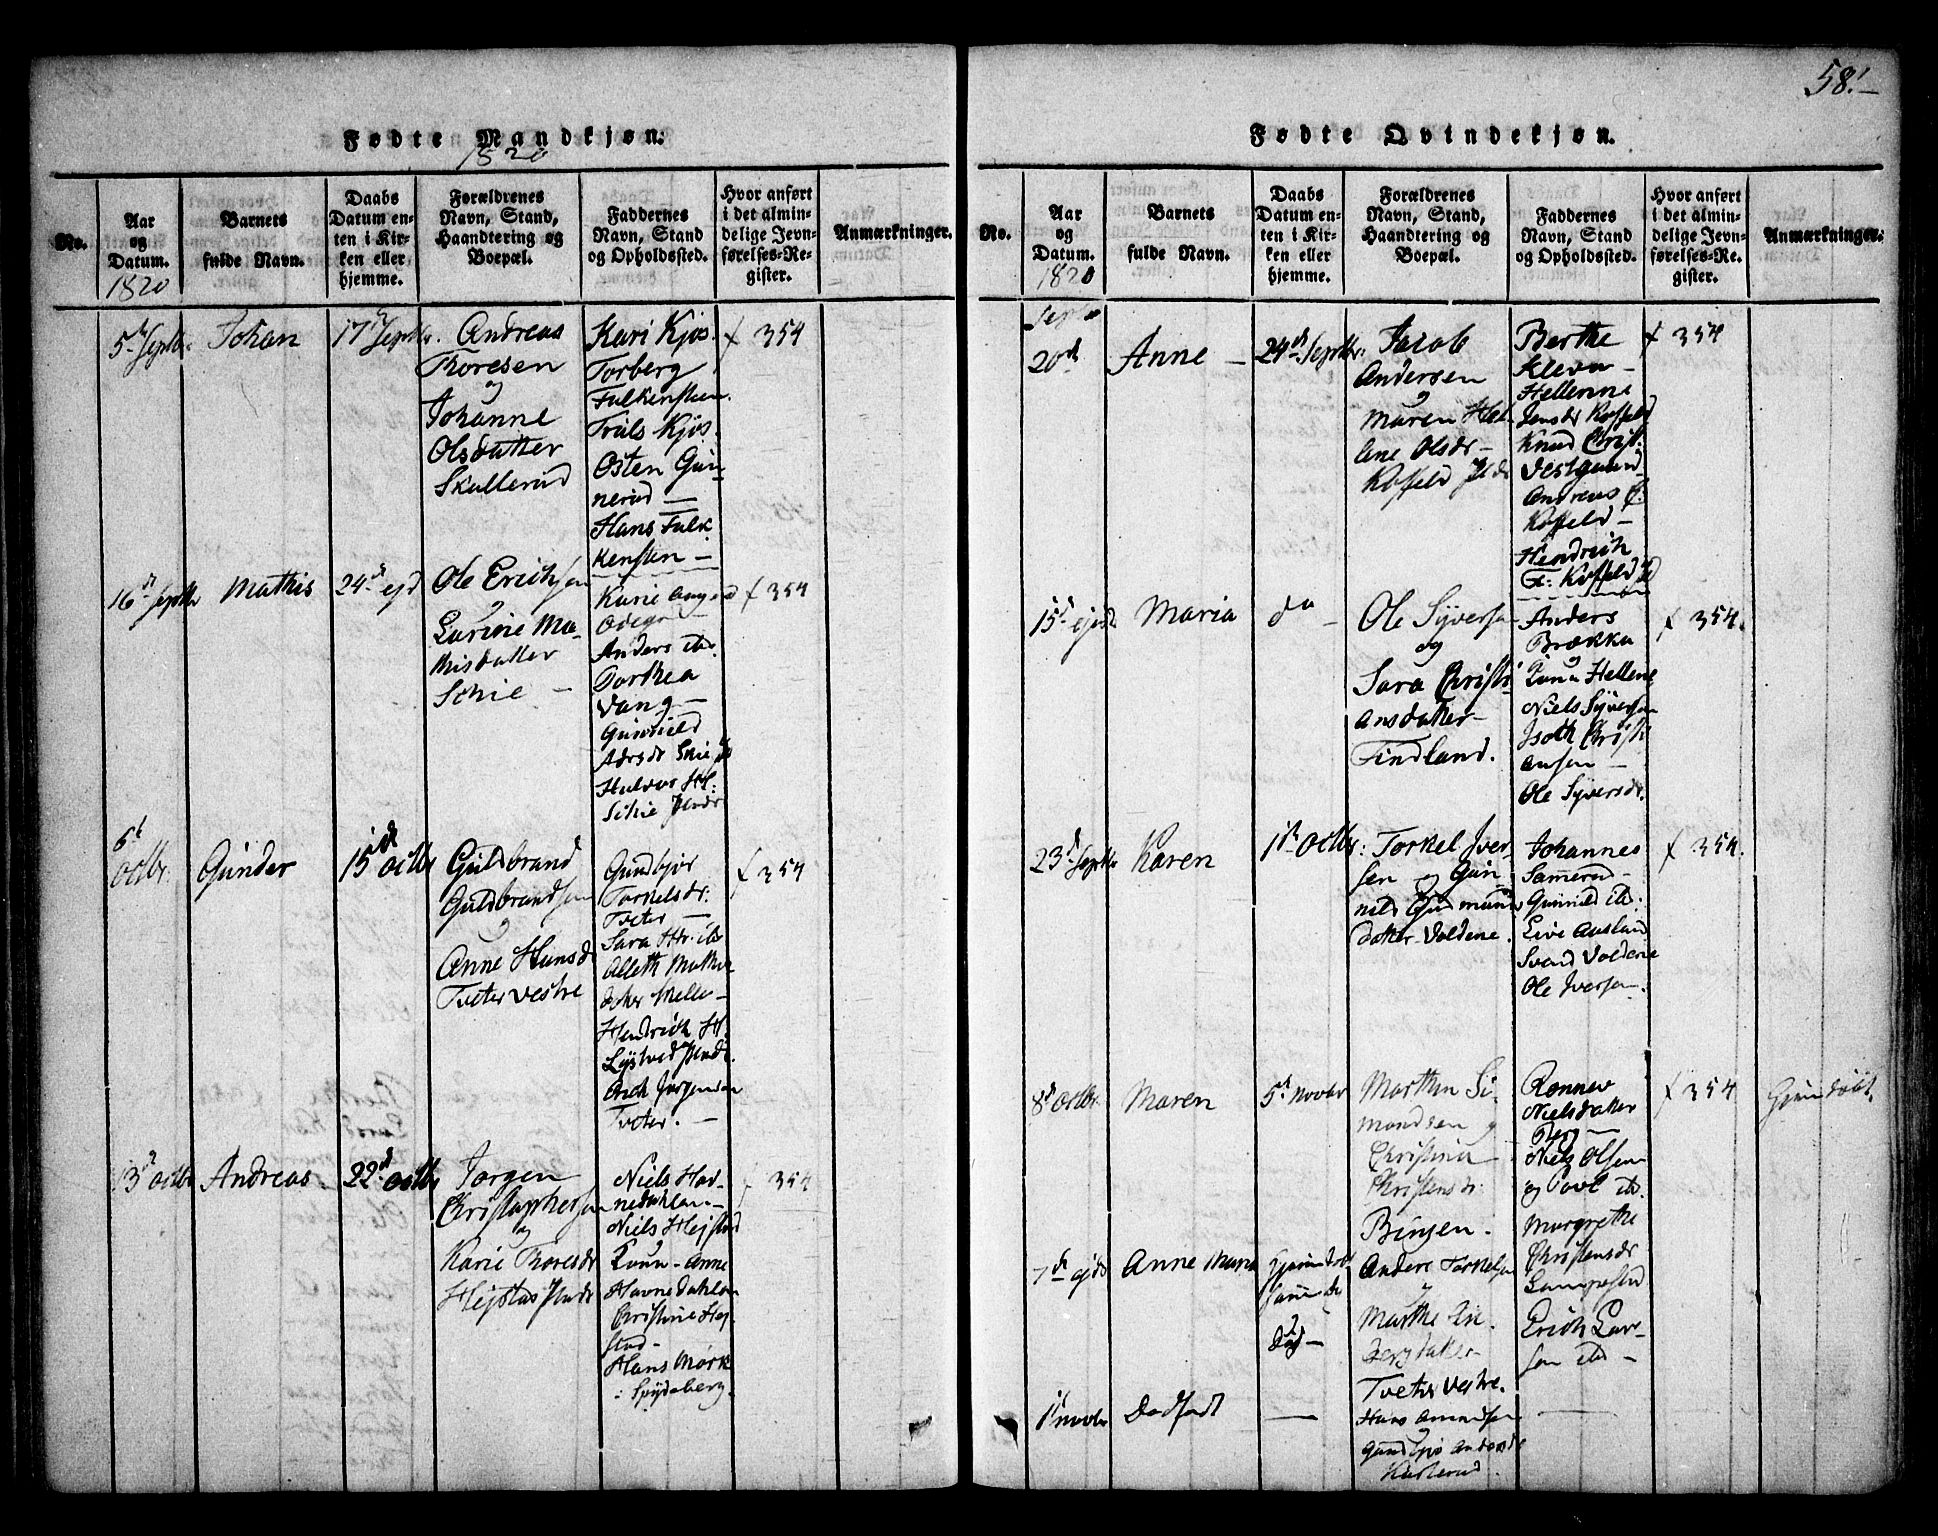 58.
Fødte Mandkjøn.
1820
No.
Aar
og
Datum.
1820
Barnets
fulde Navn.
Daabs
Datum en-
ten i Kir-
ken eller
hjemme.
Forældrenes
Navn, Stand,
Haandtering og
Boepæl.
Faddernes
Navn, Stand
og Opholdssted.
Hvor anført
i det almin-
delige Jevn-
førelses-Re-
gister.
Anmærkninger.
5 Septbr.
Johan
17 Septbr.
Andreas
Thoresen
og
Johanne
Olsdatter
Skullerud
Kari Kjøs
Torberg
Falkensteen.
Truls Kjøs.
Osten Gun-
nerud —
Hans Falk
kensten —
354
16 Septbr
Mathis
24 ejd
Ole Erichsen
og
Lurine Ma-
thisdatter
Schie —
Karie
Odegr
Anders itd.
Dorthea
Vang —
Gunnild
Schie
Halvor H:
Schie
354
6t
Octbr.
Gunder
15d Octbr
Guldbrand
Guldbrandsen
og
Anne Hansd
Tveter vestre
Gundbjør
Torkelsdr.
Tveter —
Sara Hr. itd
Alleth Mathi
datter Melle —
Hendrich H.
Lystved
Erich Jørgensen
Tveter. —
354
3 Octbr
Andreas.
22d Octbr
Jørgen
Christophersen
og
Karie Thoresdr
Hejstad
Niels Hov-
nedahlen —
Niels Hejstad
Anne
Havnedahlen
Christine Hej
stad —
Hans Mørk
Spydeberg.
354
Fødte Qvindekjøn.
No.
Aar
og
Datum.
1820
Barnets
fulde Navn.
Daabs
Datum en-
ten i Kir-
ken eller
hjemme.
Forældrenes
Navn, Stand,
Haandtering og
Boepæl.
Faddernes
Navn, Stand
og Opholdssted.
Hvor anført
i det almin-
delige Jevn-
førelses-Re-
gister.
Anmærkninger.
Septbr
20d
Anne —
24d Septbr.
Jacob
Andersen
og
Maren Hel-
lene Olsdr —
Koffeld
Berthe
Kleva —
Hellenne
Jensdr Koffeld
Knud Christ.
Vestgaard
Andreas
Koffeld —
Hendrich
Koffeld
354
15d ejsd.
Maria
do —
Ole Syversen
og
Sara Christi
ansdatter —
Findland.
Anders
Brække
Hellene
Niels Syversen
Christi
ansen —
Ole Syversdr.
354.
23 Septbr
Karen
1 Octbr.
Torkel Iver-
sen og Gun-
nild Gudmunds
datter Voldene.
Johannes
Samerud —
Gunnild itd.
Live Ausland
Svend Voldene
Ole Iversen.
354.
8d Octbr.
Maren
5t Novbr
Marthin Si-
mondsen og
Christina
Christensdr.
Bingen.
Rønnev
Nielsdatter
Berg —
Niels Olsen
og Povel itd.
354
Hjemdøbt.
7d ejsd
Anne Maria
Hjemmedøbt
samme
Dag —
Anders Torkelsen
og
Marthe
Bergdatter
Tveter Vestre.
Margrethe
Christensdr
Erich Lar-
sen itd —
1 Novbr
Dødfødt
—
Hans Amundsen
og
Andersdr
—